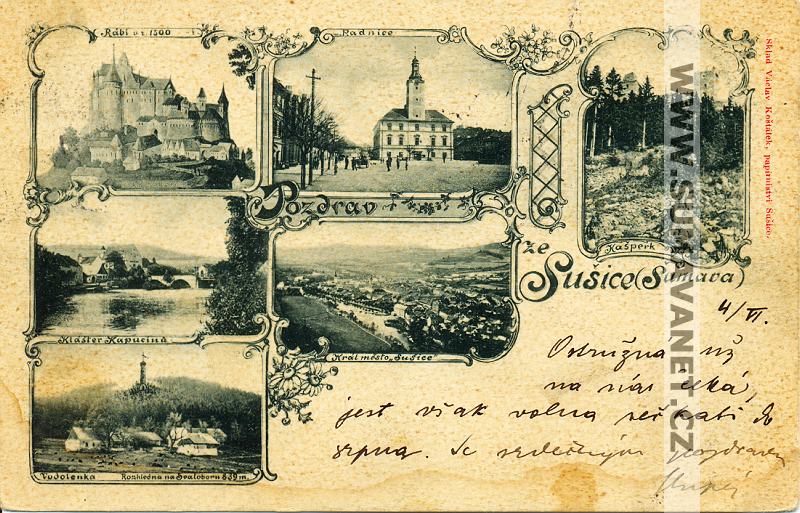 Rábí v r. 1500
Radnice
Kašperk
Pozdrav
ze
Sušice (Šumava)
Klášter Kapucínů
Král. město „Sušice"
Vodolenka Rozhledna na Svatoboru 839 m.
Sklad Václav Košťálek, papírnictví Sušice.
WWW.SUMAVANET.CZ
4/VI.
Ostružná už
na nás čeká,
jest však volna do
srpna. Se srdečným pozdravem